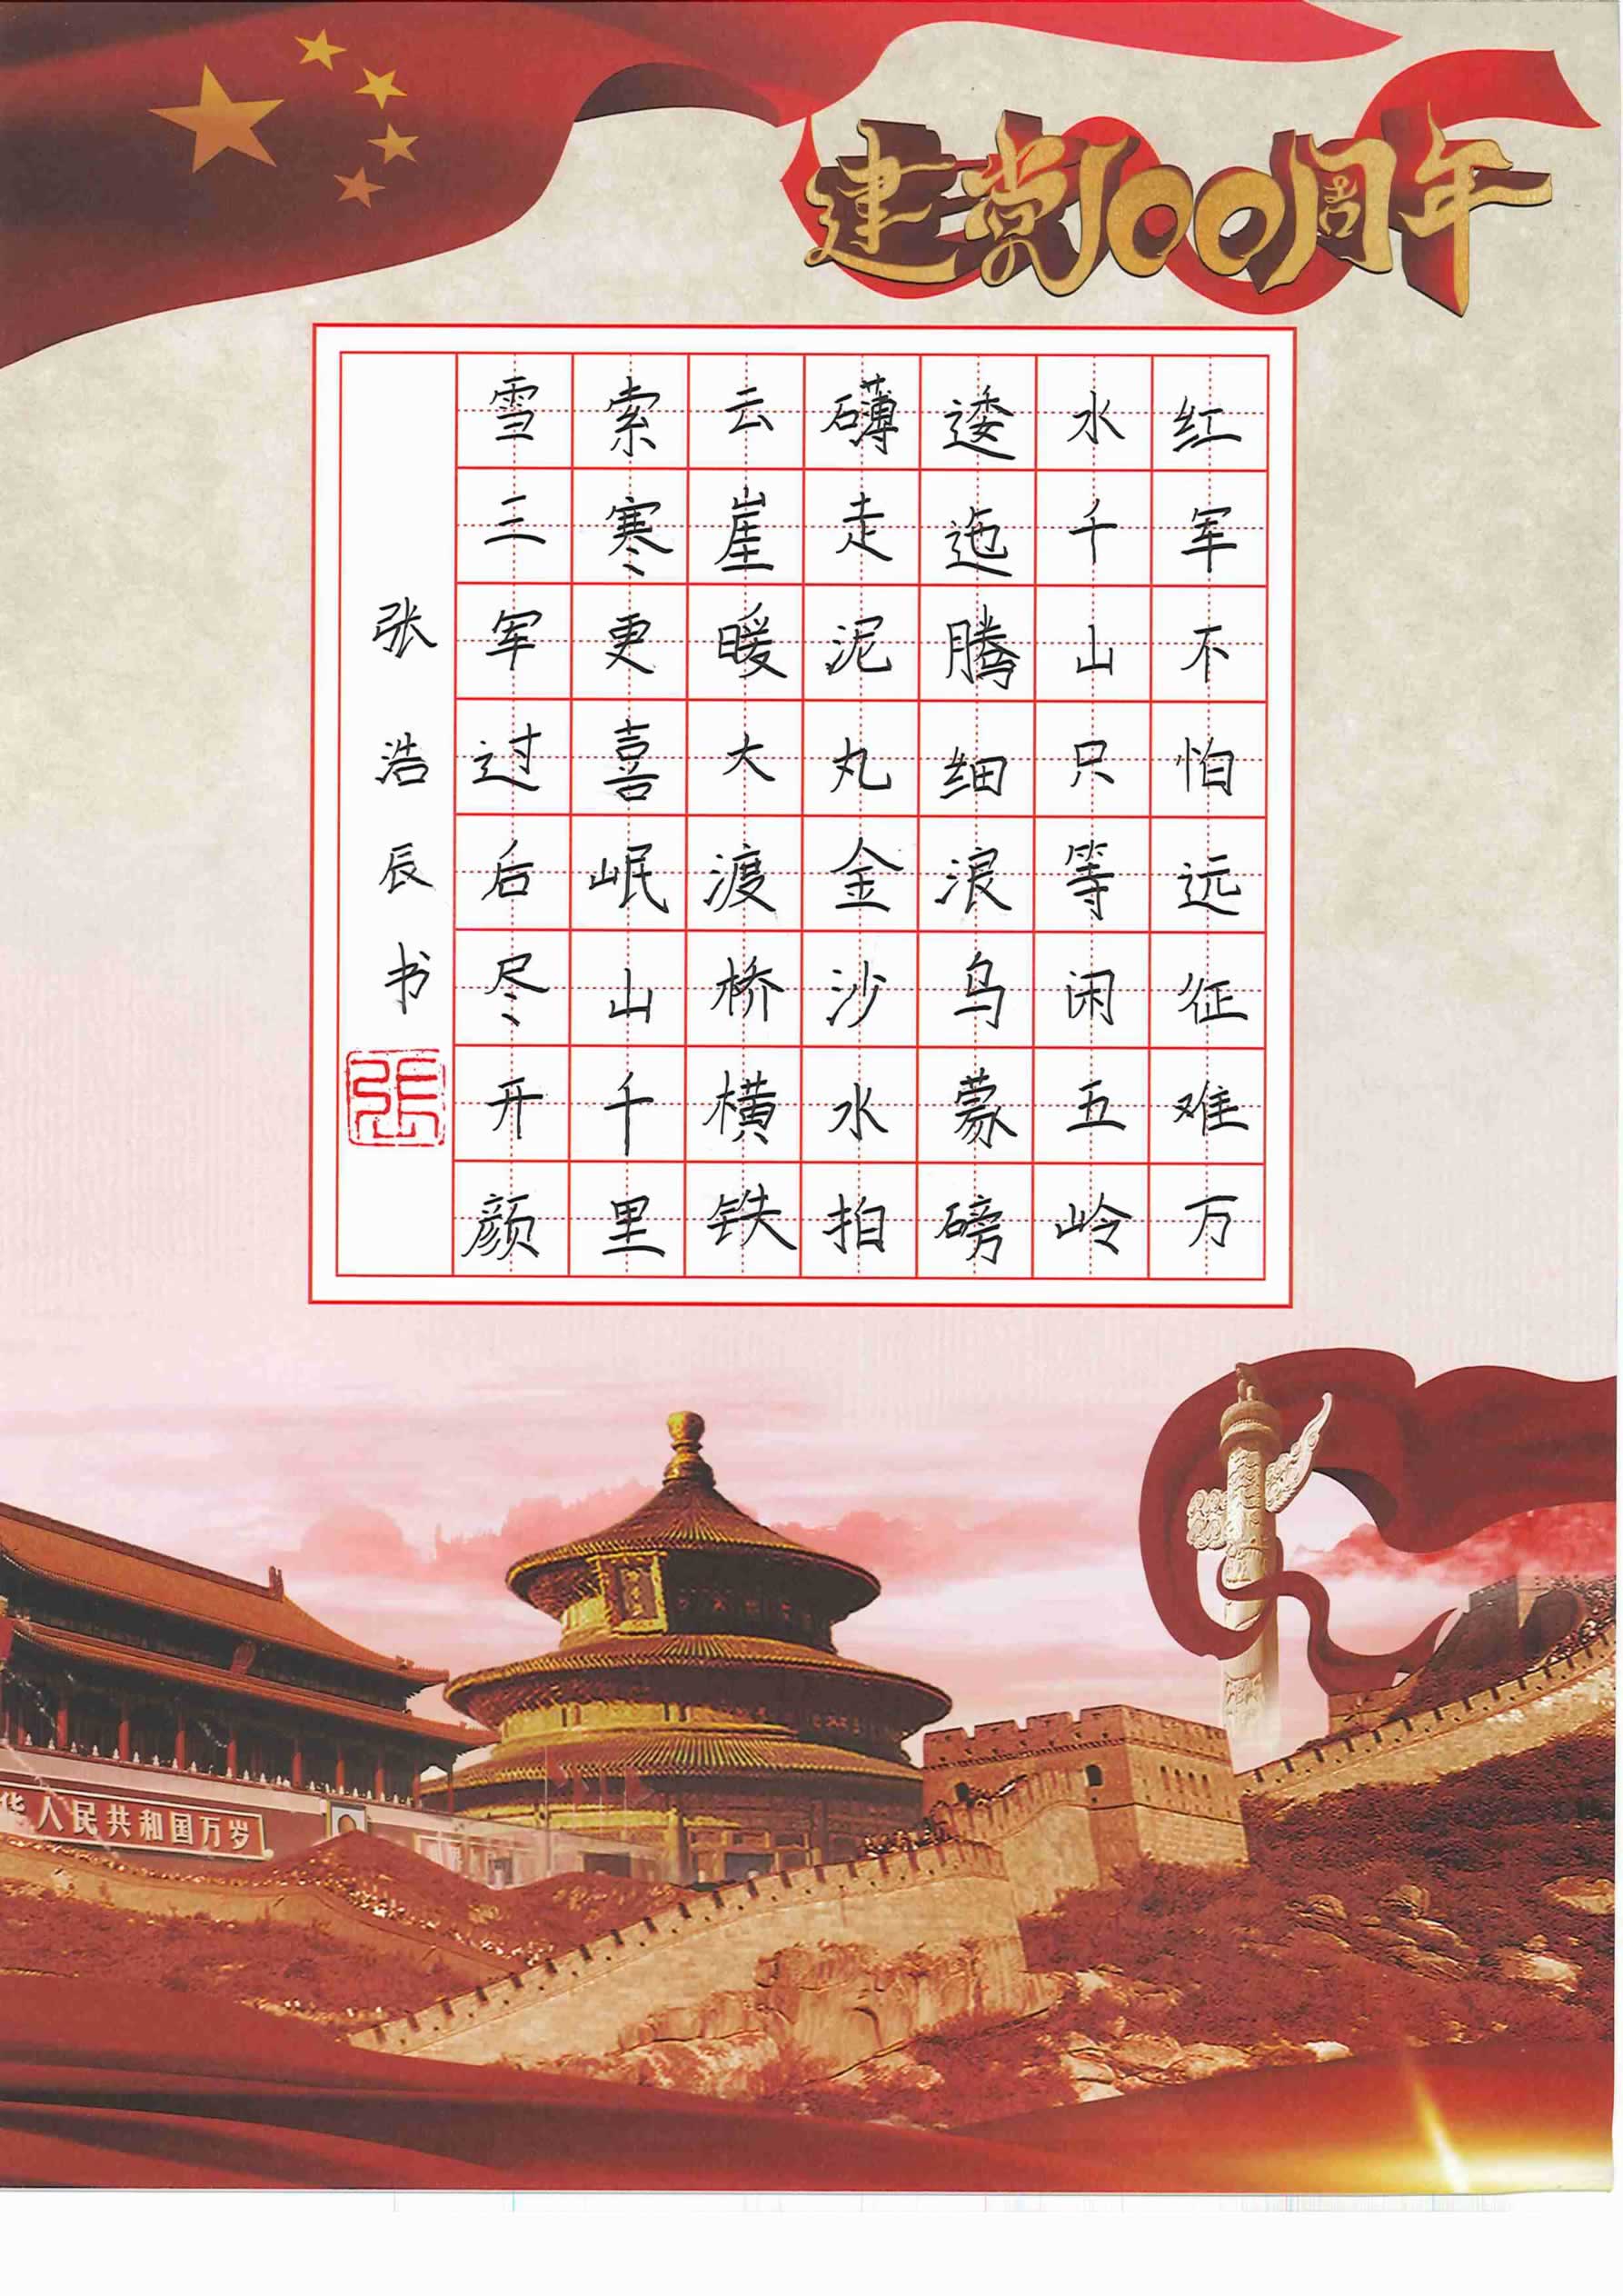 建党100周年
红军不怕远征难万
水千山只等闲五岭
逶迤腾细浪乌蒙磅
礴走泥丸金沙水拍
云崖暖大渡桥横铁
索寒更喜岷山千里
雪三军过后尽开颜
张浩辰书
張
华人民共和国万岁